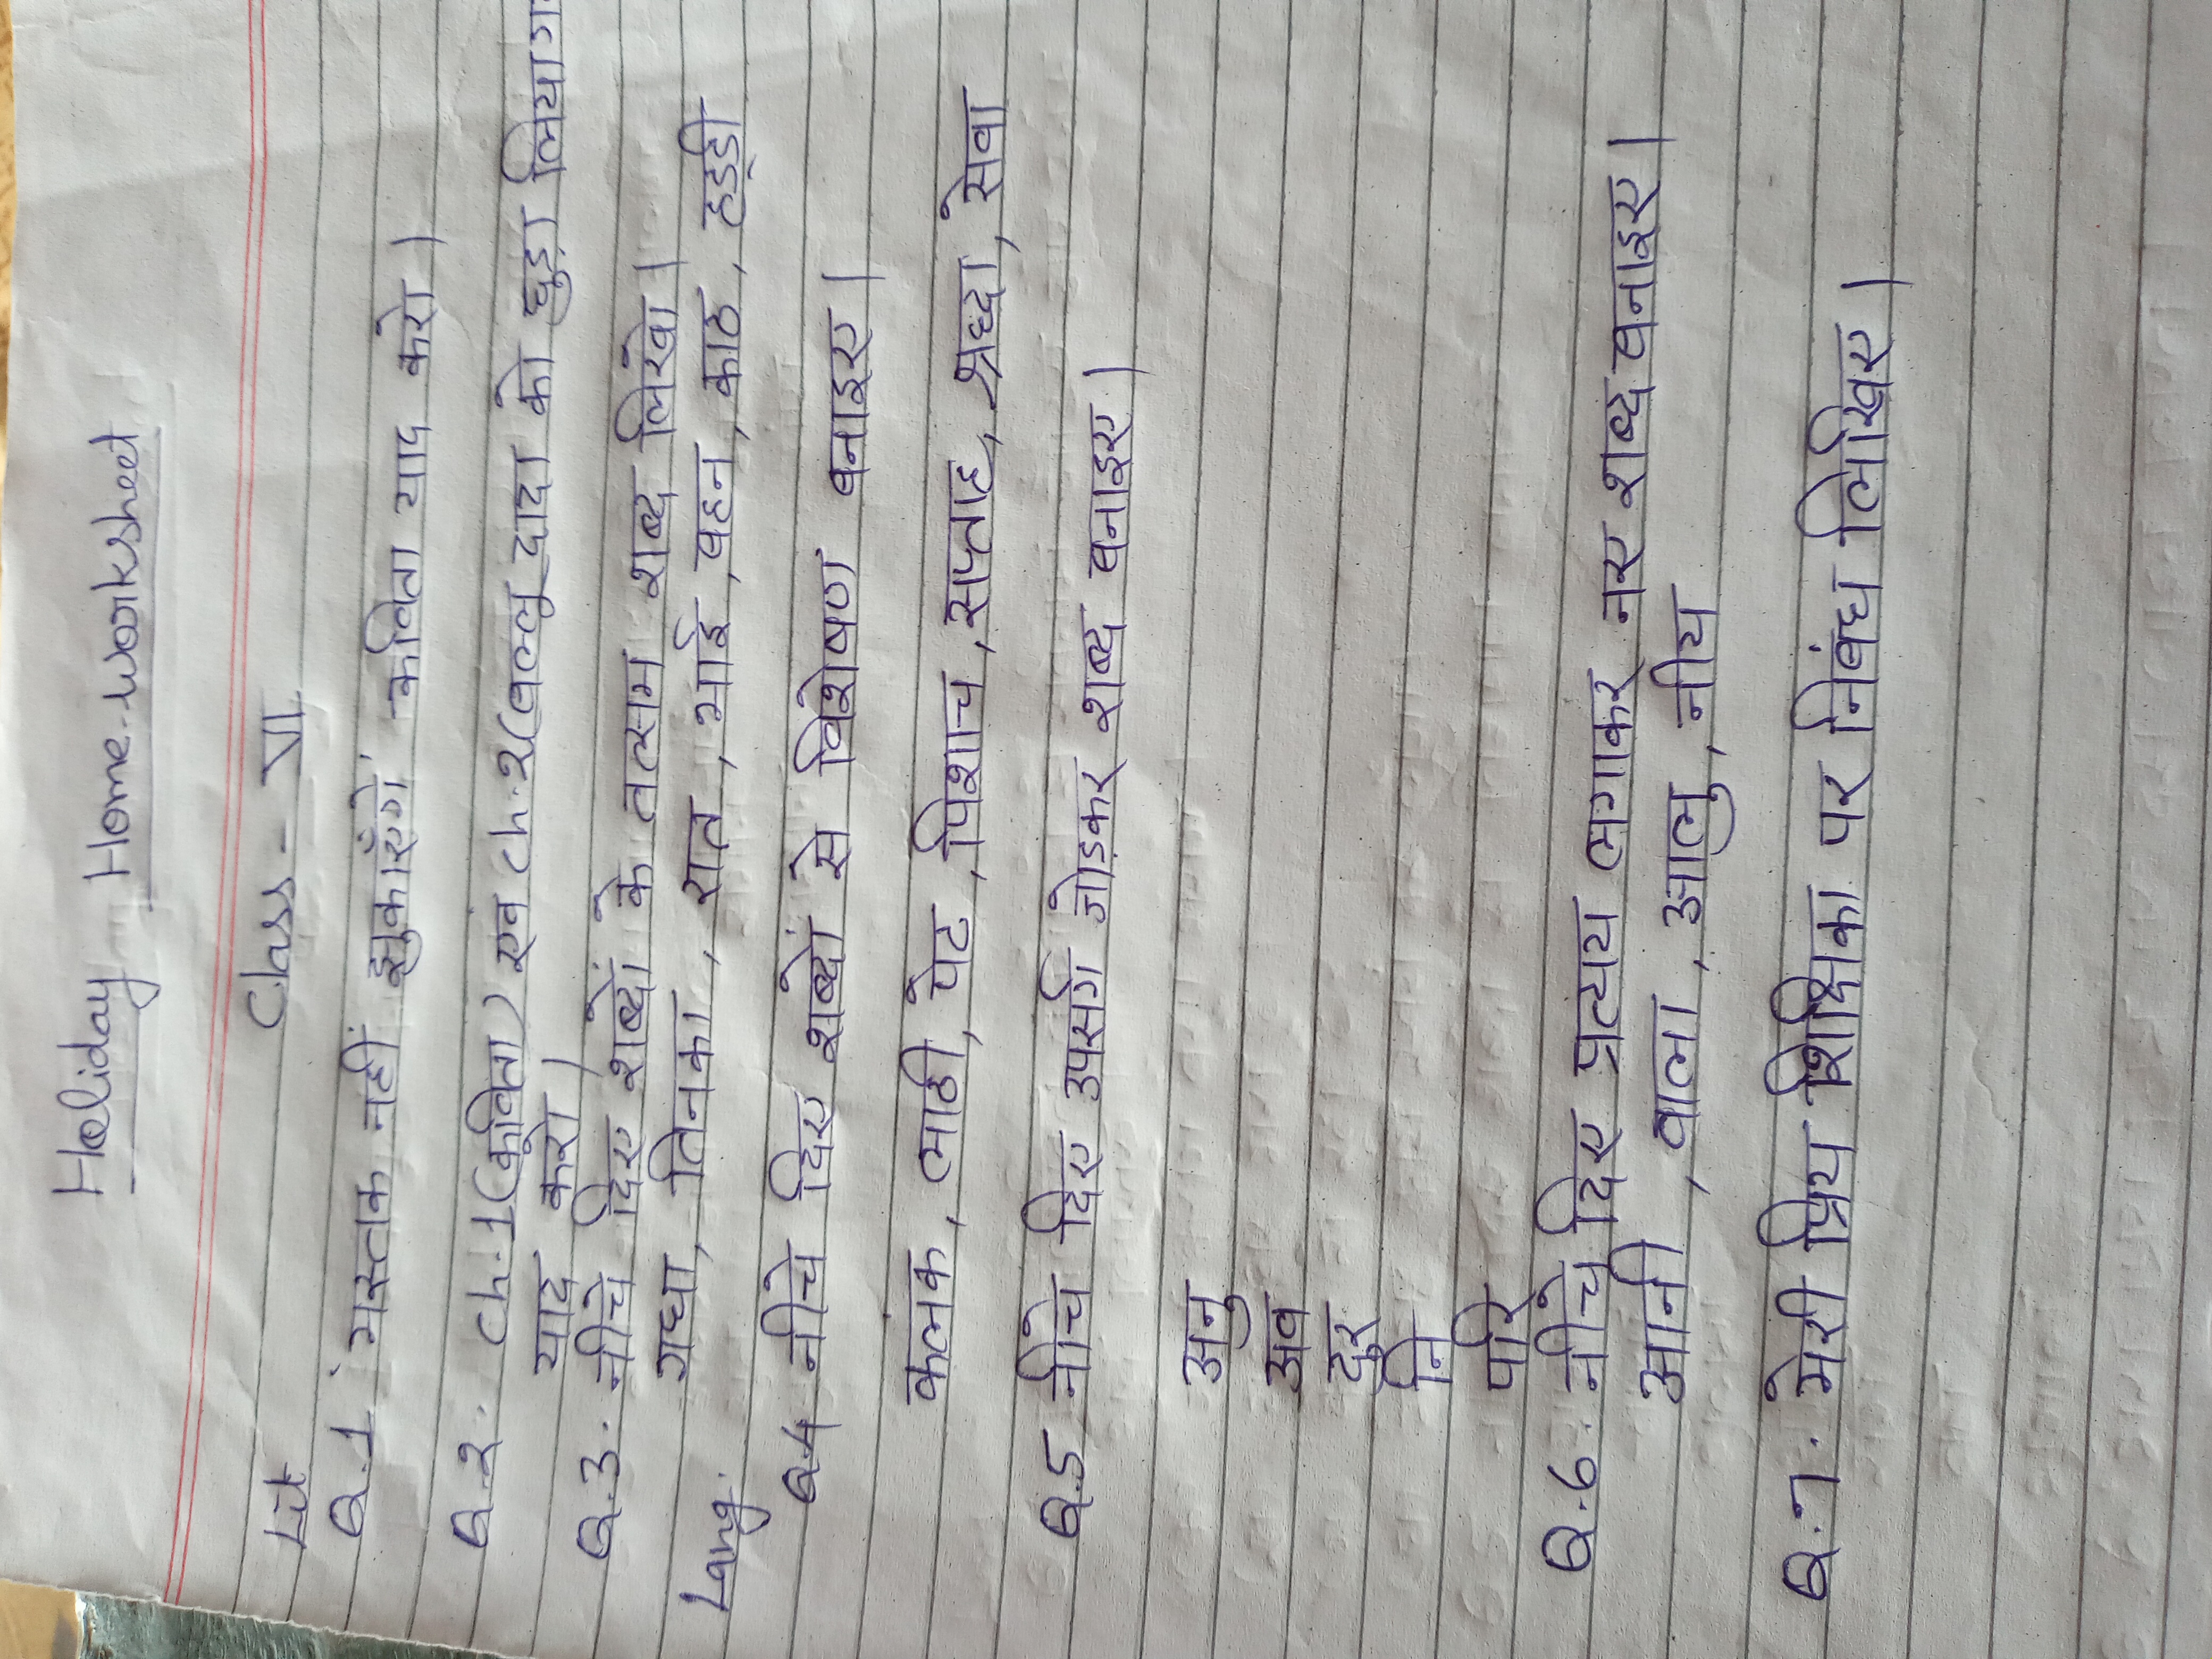 Holiday Home-worksheet
Class - VII
Lit
Q.1 मस्तक नहीं झुकाएँगे कविता याद करो।
Q.2. ch.1(कविता) एव ch.2(बल्लू दादा को छुड़ा लिया गया
याद करो।
Q.3. नीचे दिए शब्दों के तत्सम शब्द लिखो।
Lang. गधा, तिनका, रात, भाई, बहन, काठ, हड्डी
Q.4 नीचे दिए शब्दों से विशेषण बनाइए।
कलक, लाठी, पेट, पिशाच, सप्ताह, श्रध्दा, सेवा
Q.5 नीचे दिए उपसर्ग जोडकर शब्द बनाइए।
अनु
अव
दुर
नि
परि
Q.6. नीचे दिए प्रत्यय लगाकर नए शब्द बनाइए।
आनी, वाला, आलु, नीय
Q.7. मेरी प्रिय शिक्षिका पर निबंध लिखिए।